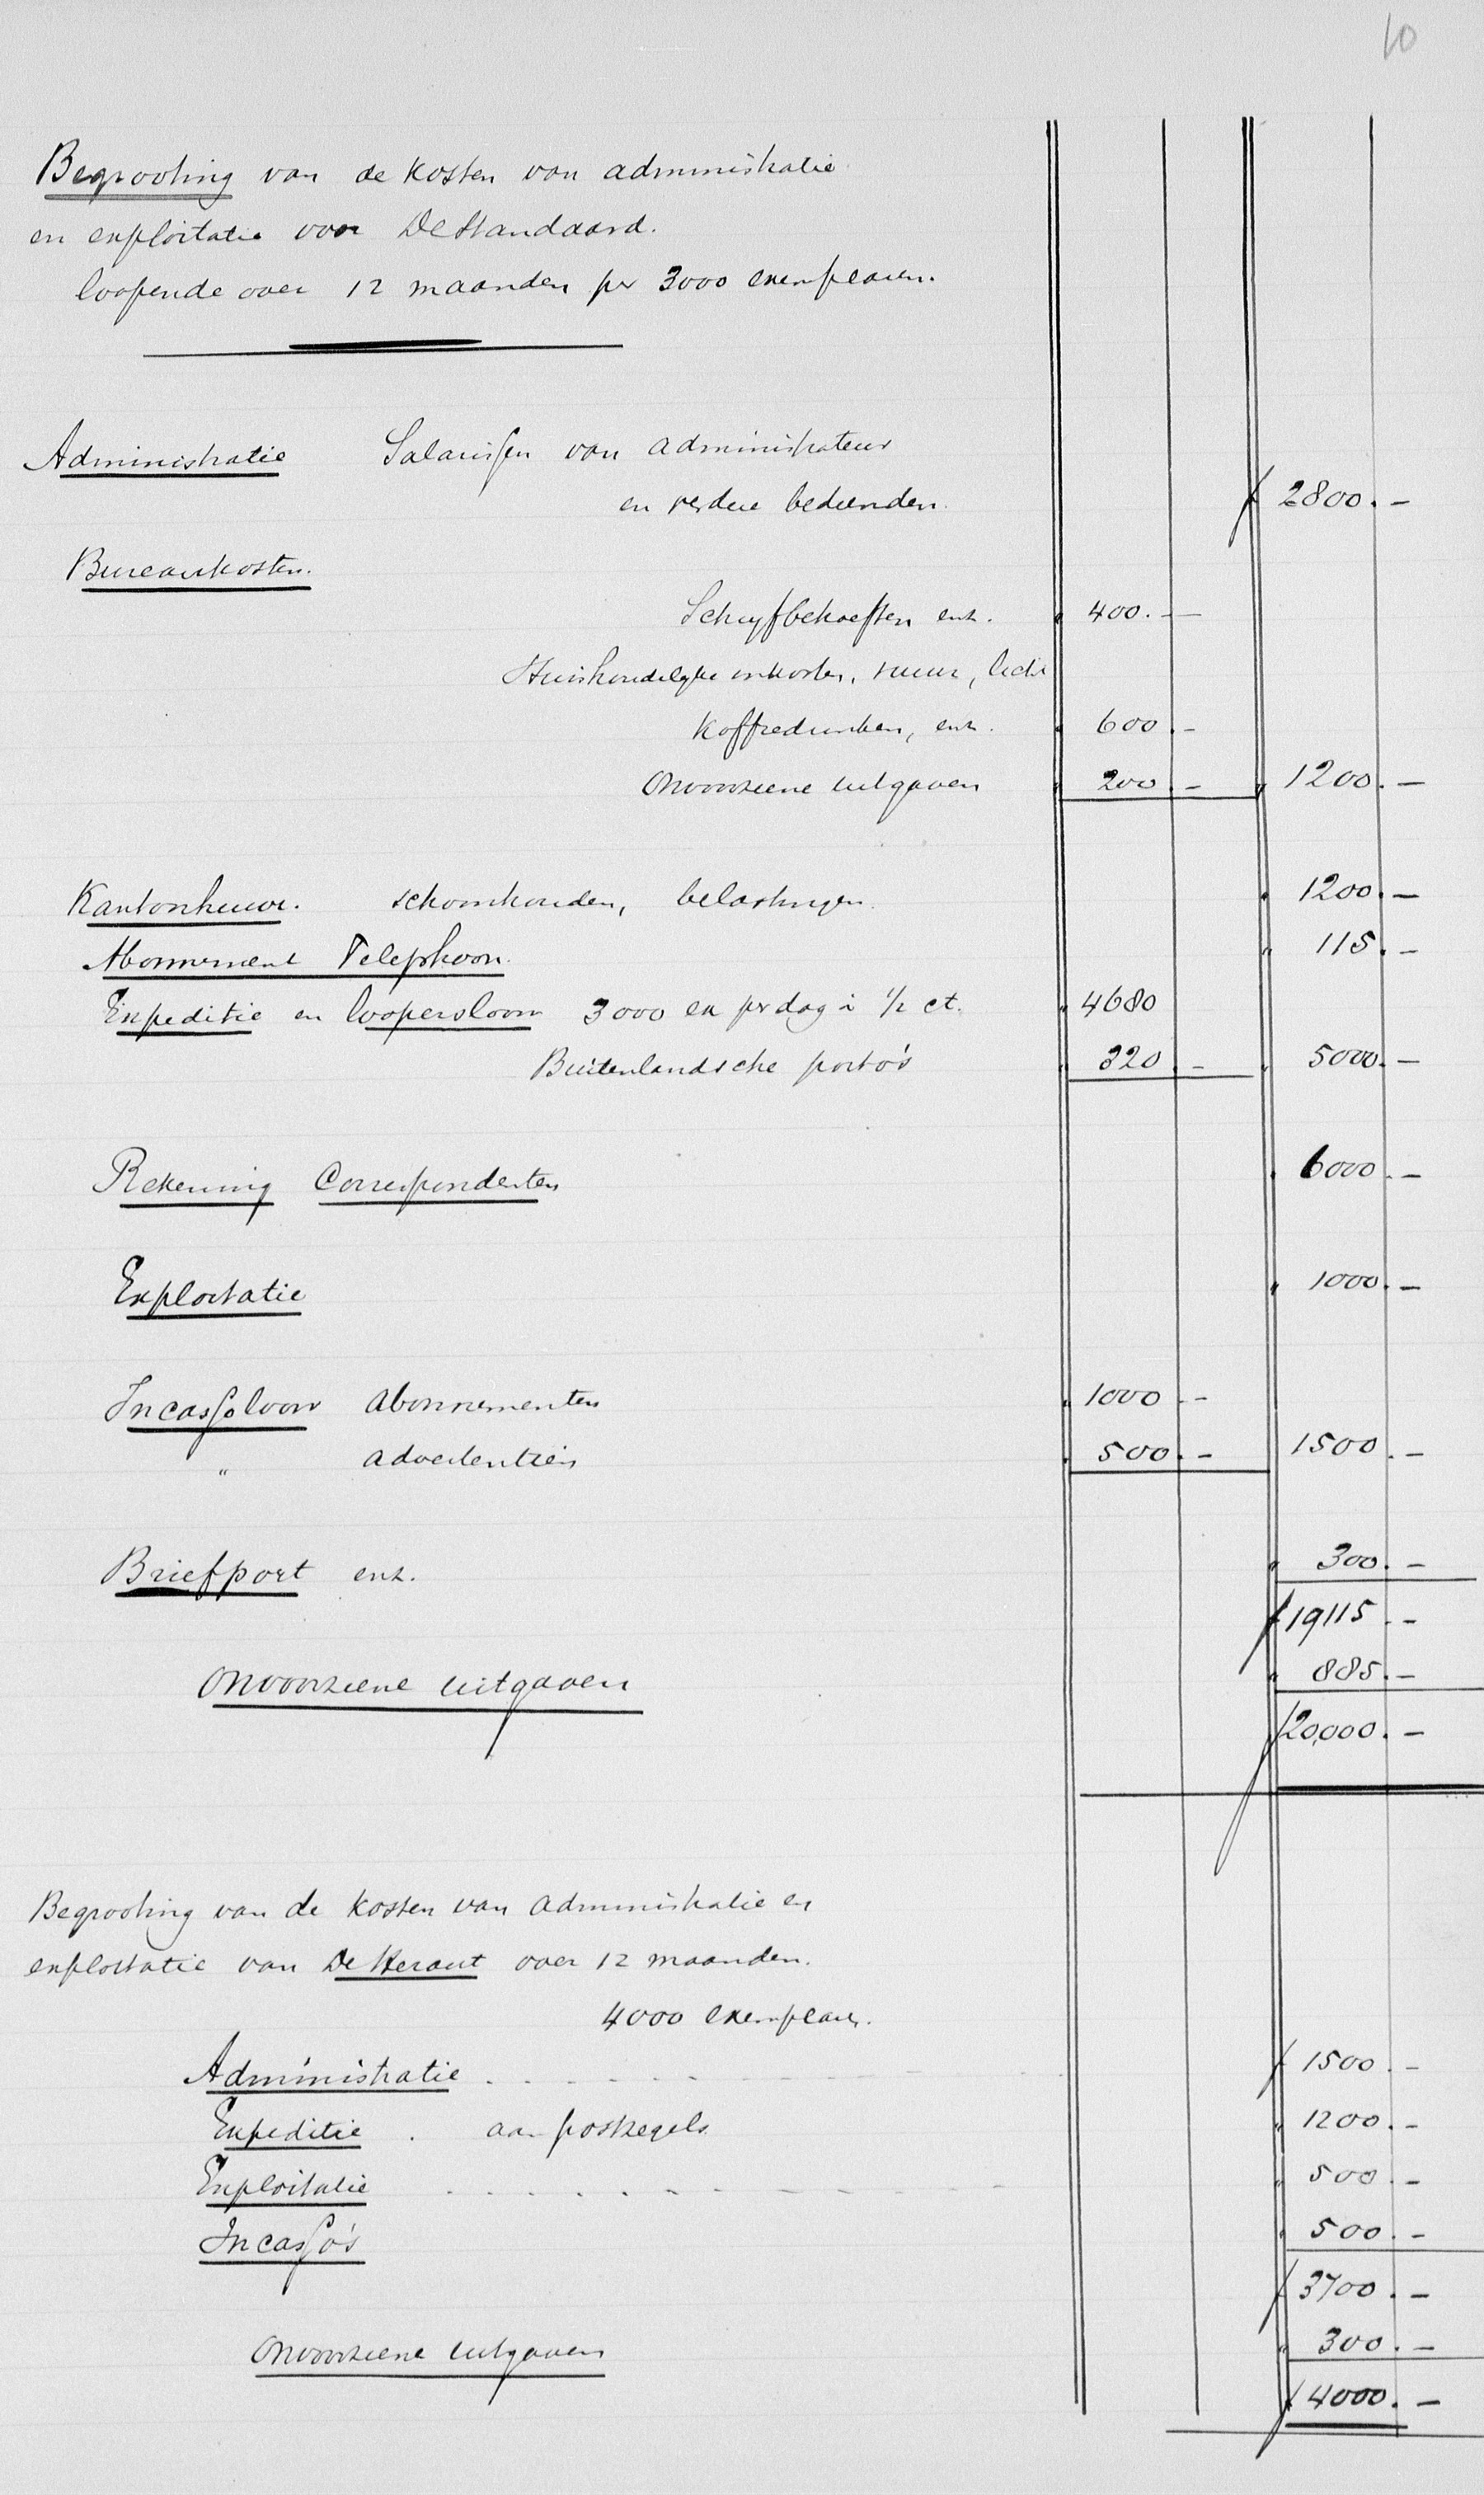 10
Begrooting van de kosten van administratie
en exploitatie voor De Standaard.
loopende over 12 maanden pr 3000 exemplaren.
Administratie Salarissen van administrateur
en verdere bedienden. ƒ 2800.–
Bureaukosten.
Schryfbehoeften enz. " 400.–
Huishoudelyke onkosten, vuur, licht
Koffiedrinken, enz. " 600.–
Onvoorziene uitgaven " 200.– " 1200.–
Kantoorhuur. schoonhouden, belastingen. " 1200.–
Abonnement Telephoon. " 115.–
Expeditie en loopersloon 3000 ex pr dag à ½ ct. " 4680
Buitenlandsche porto's " 320.– " 5000.–
Rekening Correspondenten " 6000.–
Exploitatie " 1000.–
Incassoloon abonnementen " 1000.–
" advertentiën " 500.– 1500.–
Briefport enz. " 300.–
ƒ 19115.–
Onvoorziene uitgaven " 885.–
ƒ 20,000.–
Begrooting van de kosten van administratie en
exploitatie van De Heraut over 12 maanden.
4000 exemplaren.
Administratie . . . . . . ƒ 1500.–
Expeditie . aan postzegels " 1200.–
Exploitatie . . . . . . " 500.–
Incasso's " 500.–
ƒ 3700.–
Onvoorziene uitgaven " 300.–
ƒ 4000.–